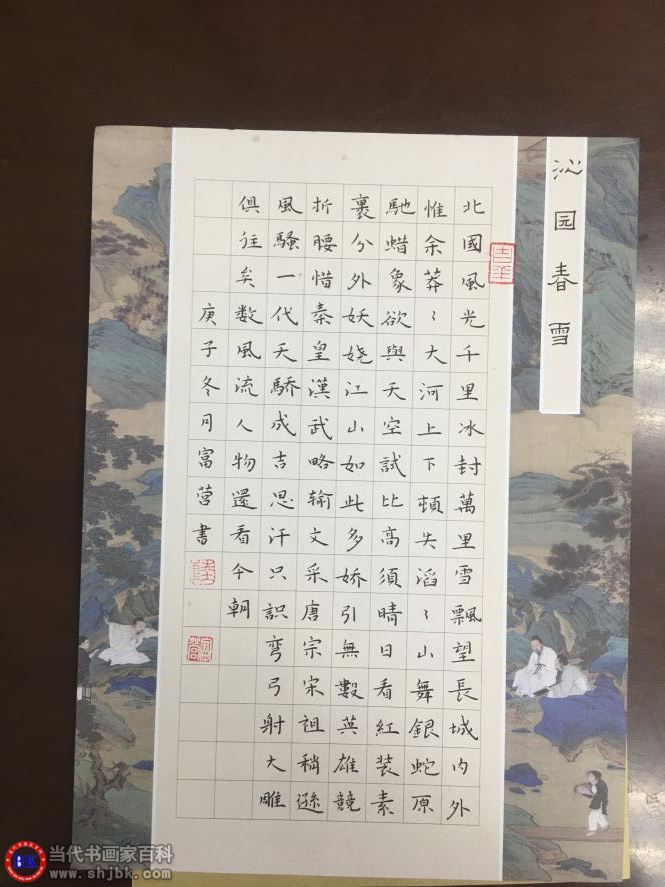 沁园春雪
北國風光千里冰封萬里雪飄望長城内外
惟余莽〻大河上下頓失滔〻山舞銀蛇原
馳蜡象欲與天空試比高須晴日看紅装素
裹分外妖娆江山如此多娇引無數英雄競
折腰惜秦皇漢武略输文采唐宗宋祖稍遜
風騷一代天驕成吉思汗只識弯弓射大雕
俱往矣数風流人物還看今朝
庚子冬月富营書
BK
当代书画家百科
www.shjbk.com